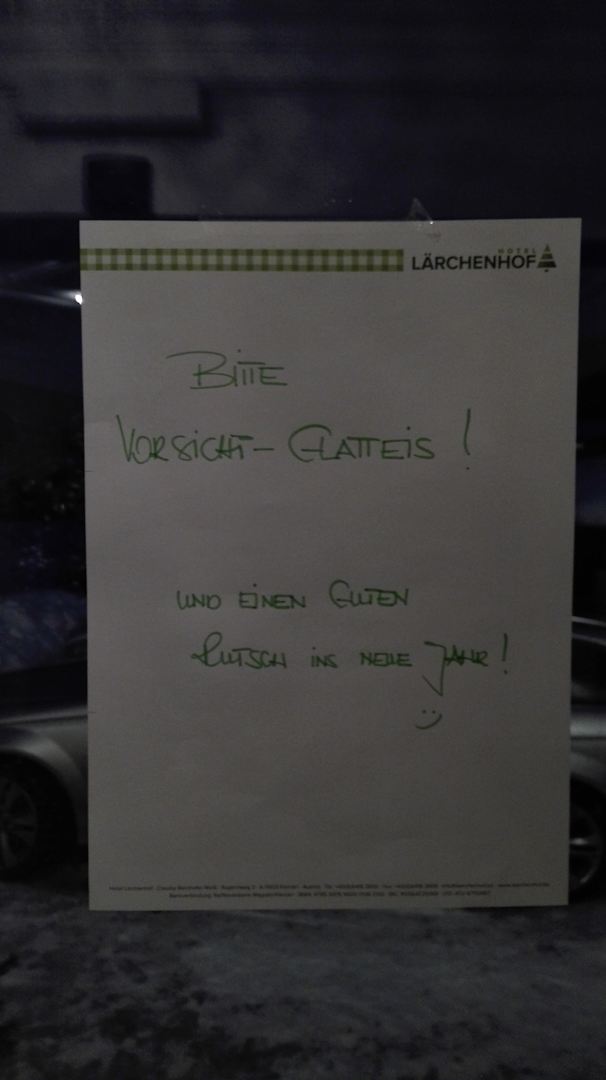 HOTEL
LÄRCHENHOF
BITTE
VORSICHT - GLATTEIS !
UND EINEN GUTEN
RUTSCH INS NEUE JAHR !
:)